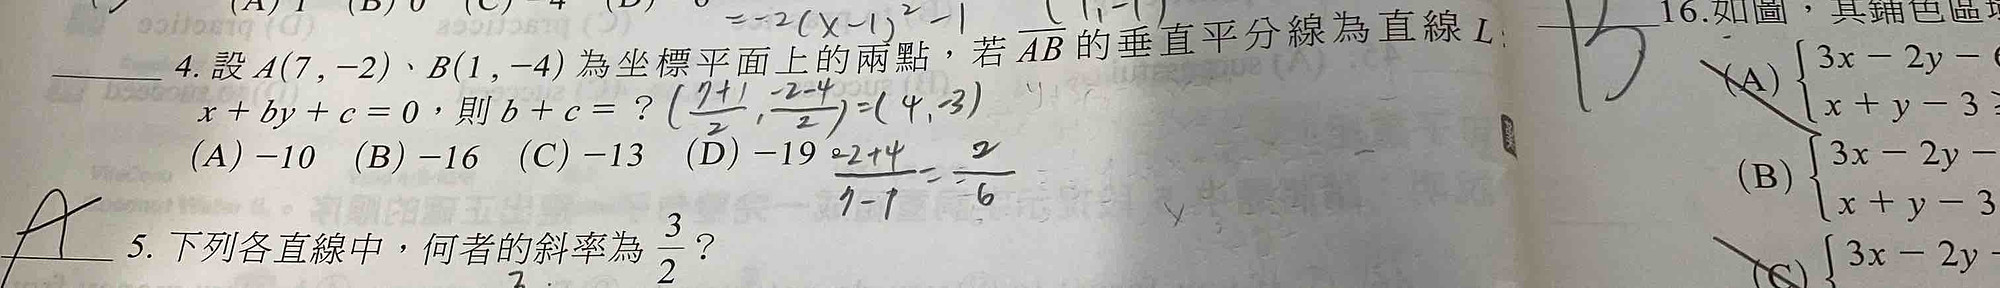 = -2(x-1)² - 1
(1, -1)
4. 設 A(7, -2)、B(1, -4) 為坐標平面上的兩點，若 AB 的垂直平分線為直線 L：
x + by + c = 0，則 b + c = ？
(7+1/2, -2-4/2) = (4, -3)
(A) -10 (B) -16 (C) -13 (D) -19
-2+4/7-1 = 2/6
A
5. 下列各直線中，何者的斜率為 3/2？
B
16.如圖，其鋪色區
(A) { 3x - 2y -
x + y - 3
(B) { 3x - 2y -
x + y - 3
(C) { 3x - 2y -